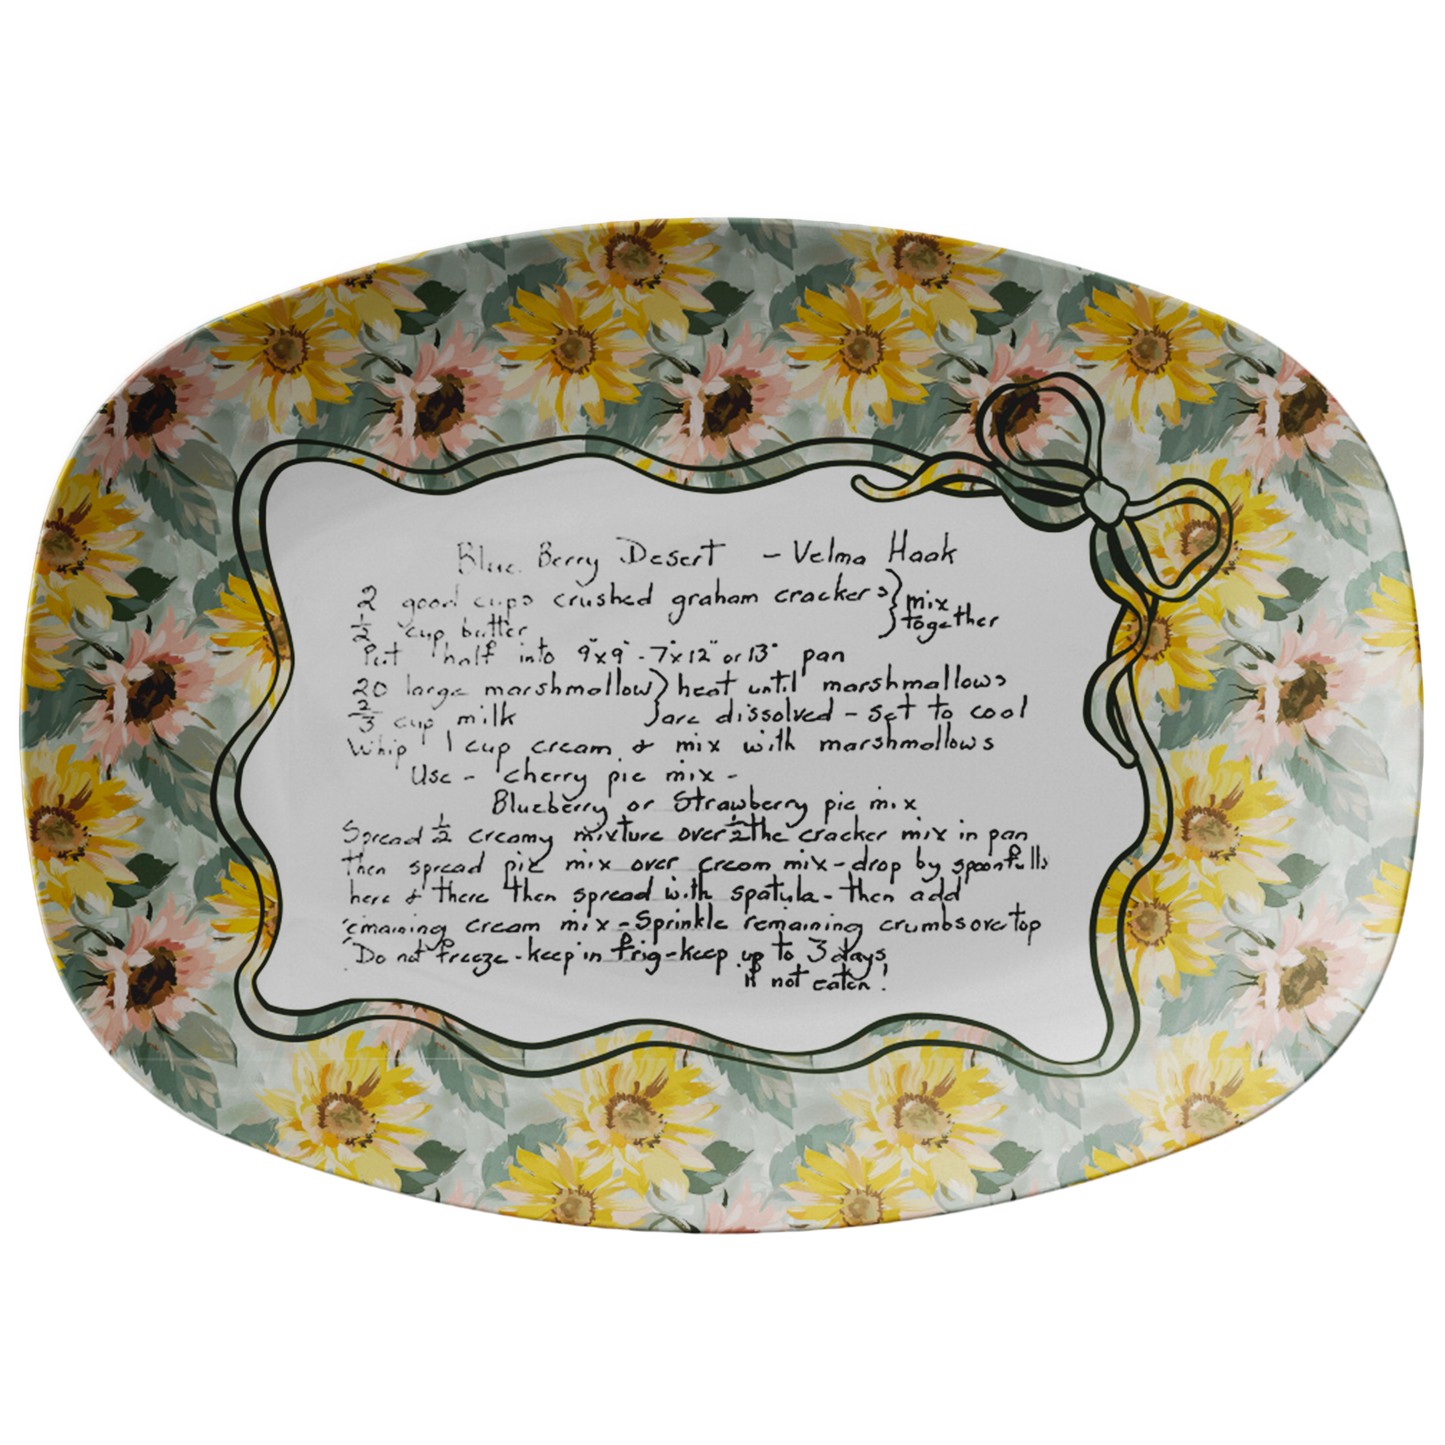 Blue Berry Desert - Velma Haak
2 good cups crushed graham crackers } mix
1/2 cup butter } together
Put half into 9"x9" - 7"x12" or 13" pan
20 large marshmallow } heat until marshmallows
2/3 cup milk } are dissolved - set to cool
Whip 1 cup cream & mix with marshmallows
Use - cherry pie mix -
Blueberry or Strawberry pie mix
Spread 1/2 creamy mixture over 1/2 the cracker mix in pan
then spread pie mix over cream mix - drop by spoonfulls
here & there then spread with spatula - then add
emaining cream mix - Sprinkle remaining crumbs over top
Do not freeze - keep in frig - keep up to 3 days
if not eaten!